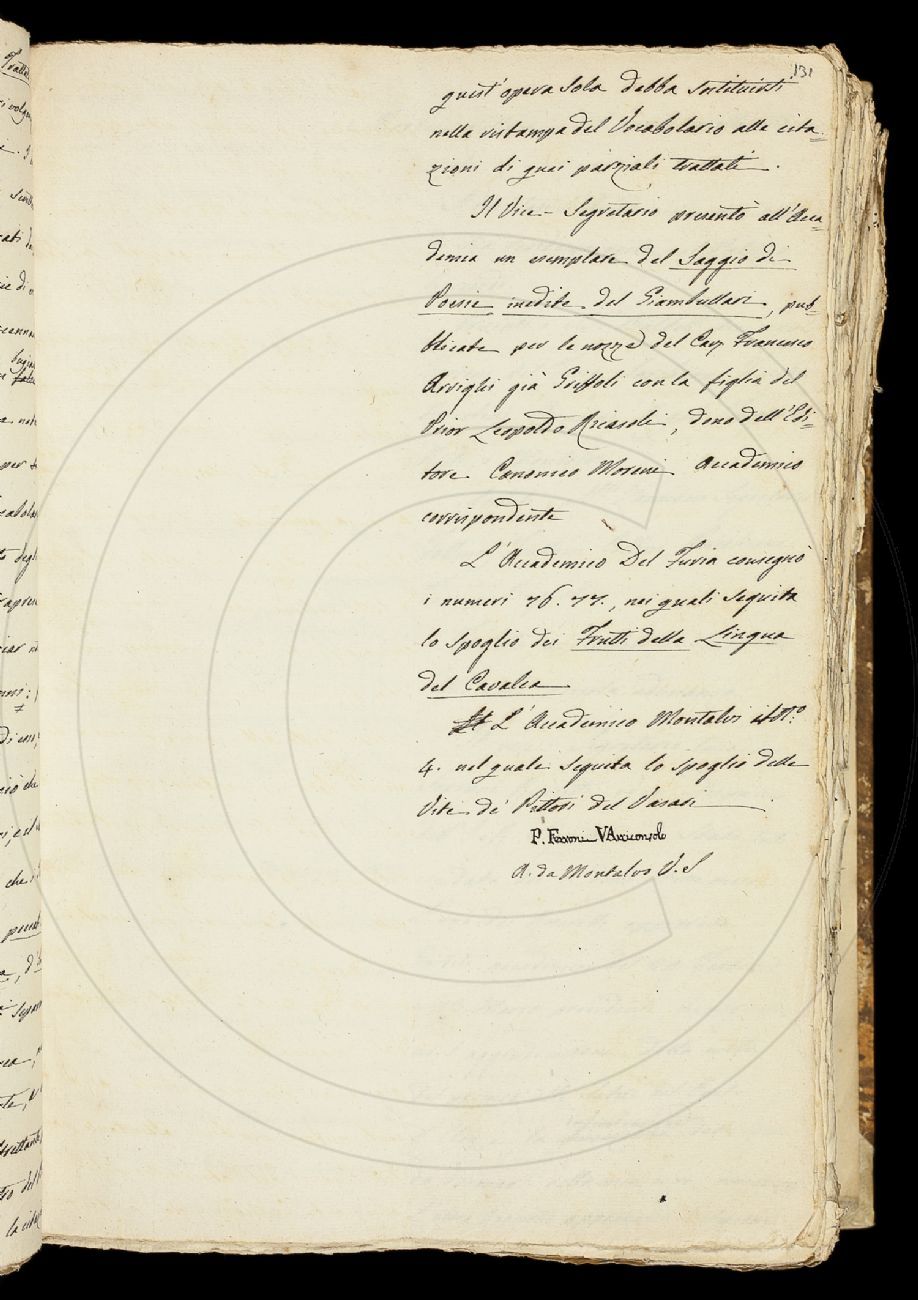 131
quest'opera sola debba sostituirsi
nella ristampa del Vocabolario alle cita=
zioni di quei parziali trattati.
Il Vice-Segretario presentò all'Acca=
demia un esemplare del Saggio di
Poesie inedite del Giambullari, pub=
blicate per le nozze del Cav. Francesco
Arrighi già Griffoli con la figlia del
Prior Leopoldo Ricasoli, dono dell'Edi=
tore Canonico Moreni Accademico
corrispondente
L'Accademico Del Furia consegnò
i numeri 76. 77., nei quali seguita
lo spoglio dei Frutti della Lingua
del Cavalca
L'Accademico Montalvi il N.o
4. nel quale seguita lo spoglio delle
Vite de' Pittori del Vasari.
P. Ferroni V. Arciconsolo
A. da Montalvo V. S